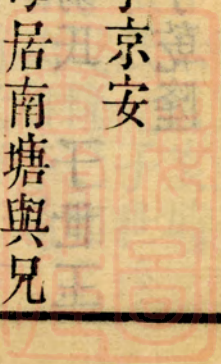 京安
居南塘與兄